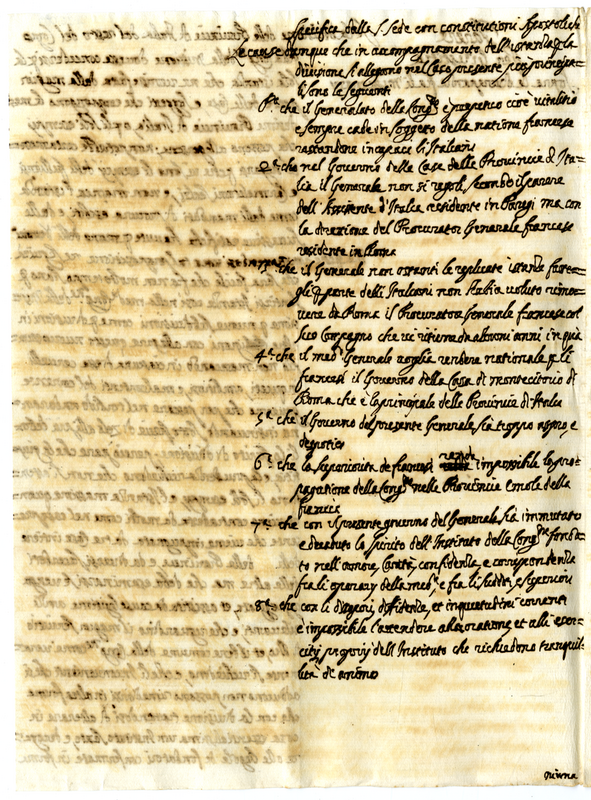 specifica dalla S. Sede con constitutioni Apostoliche
Le cause dunque che in accompagnamento dell'istanza della
divisione si allegono nel Caso presente
si sono le seguenti
P.a che il Generalato della Cong.ne è perpetuo cioè vitalitio
e sempre cade in soggetto della natione francese
restandone incapaci l'Italiani
2.a che nel Governo delle Case delle Provincie d'Ita=
lia il Generale non si regoli secondo il parere
dell'Assistente d'Italia residente in Parigi ma con
la direzione del Procurator Generale francese
residente in Roma
3.a che il Generale non ostanti le replicate istanze fatte=
gli da parte delli Italiani non habia voluto rimo=
vere da Roma il Procuratore Generale francese col
suo Compagno che vi è da alcuni anni in quà
4.a che il med.o Generale voglia rendere nationale per li
francesi il Governo della Casa di montecitorio di
Roma che è la principale delle Provincie d'Italia
5.a che il Governo del presente Generale sia troppo aspro, e
despotico
6.a che la superiorità de francesi rende impossibile la pro=
pagatione della Cong.ne nelle Provincie e mole della
francia
7.a che con il presente governo del Generale sia immutato
e decaduto lo spirito dell'Instituto della Cong.ne fonda=
to nell'amore, Carità, confidenza, e corrispondenza
fra li operarij della med.a, e fra li sudditi, e superiori
8.a che con li disgusti, diffidenze, et inquietudini correnti
è impossibile l'attendere alle orationi, et alli eser=
citij proprij dell'Instituto che richiedono tranquil=
lità di animo